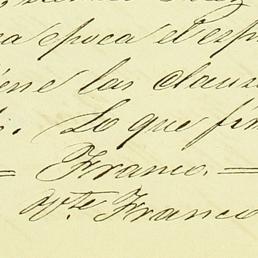 a epoca el esp
iene las clauz
. Lo que fir
= Franco. =
Vte. Franco